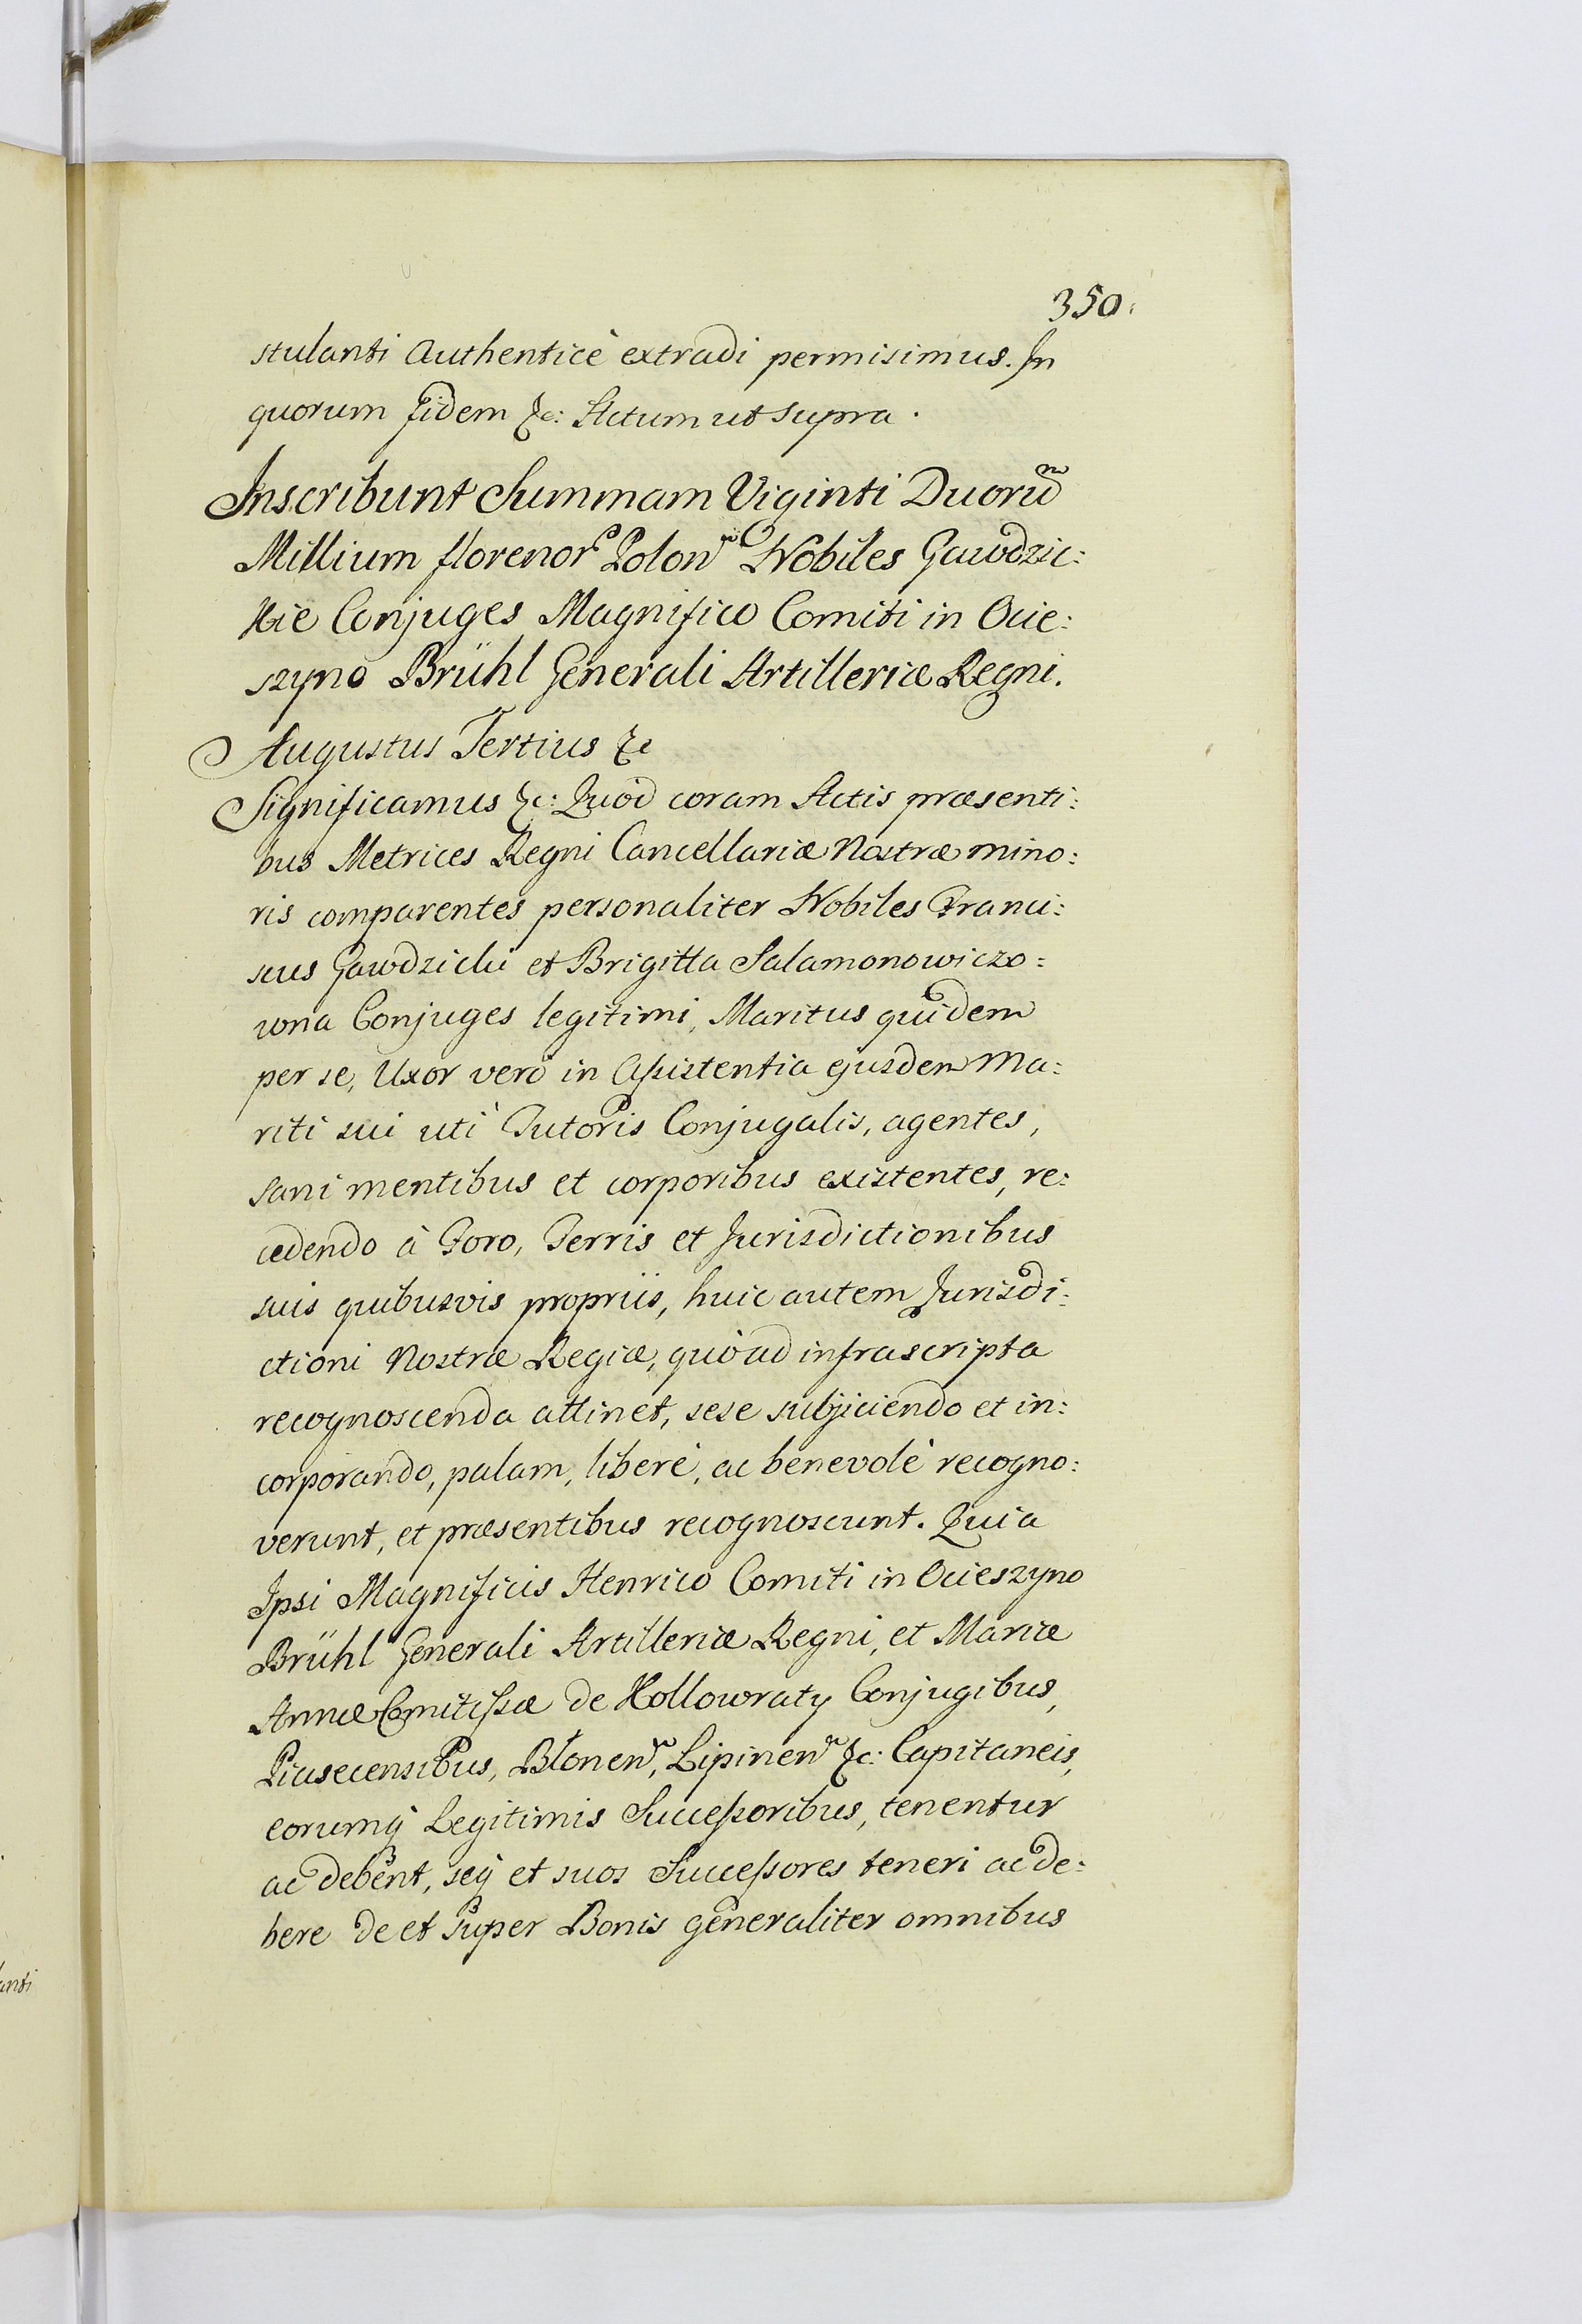 350.
stulanti Authenticè extradi permisimus. In
quorum fidem &c: Actum ut supra.
Inscribunt Summam Viginti Duorũ
Millium florenor Polon Nobiles Gawdzic:
kie Conjuges Magnifico Comiti in Ocie:
szyno Brühl Generali Artilleriæ Regni.
Augustus Tertius &c
Significamus &c: Quòd coram Actis præsenti:
bus Metrices Regni Cancellariæ Nostræ mino:
ris comparentes personaliter Nobiles Franci:
scus Gawdzicki et Brigitta Salamonowiczo:
wna Conjuges legitimi, Maritus quidem
per se, Uxor verò in Assistentia ejusdem Ma:
riti sui uti Tutoris Conjugalis, agentes,
sani mentibus et corporibus existentes, re:
cedendo à Foro, Terris et Jurisdictionibus
suis quibusvis propriis, huic autem Jurisdi:
ctioni Nostræ Regiæ, quò ad infrascripta
recognoscenda attinet, sese subjiciendo et in:
corporando, palam, liberè, ac benevolè recogno:
verunt, et præsentibus recognoscunt. Quia
Ipsi Magnificis Henrico Comiti in Ocieszyno
Brühl Generali Artilleriæ Regni, et Mariæ
Annæ Comitissæ de Kollowraty Conjugibus,
Piasecensibus, Blonen, Lipinen &c: Capitaneis,
eorumq̃ Legitimis Successoribus, tenentur
ac debent, seq̃ et suos Successores teneri ac de:
bere de et super Bonis generaliter omnibus
anti